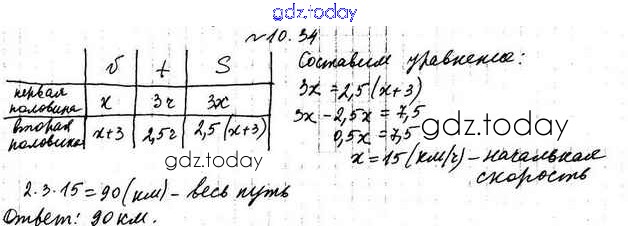 gdz.today
№10.34
v t S
первая половина x 3ч 3x
вторая половина x+3 2,5ч 2,5(x+3)
gdz.today
Составим уравнение:
3x = 2,5(x+3)
3x - 2,5x = 7,5
0,5x = 7,5
gdz.today
x = 15 (км/ч) - начальная
скорость
2·3·15 = 90 (км) - весь путь
Ответ: 90 км.